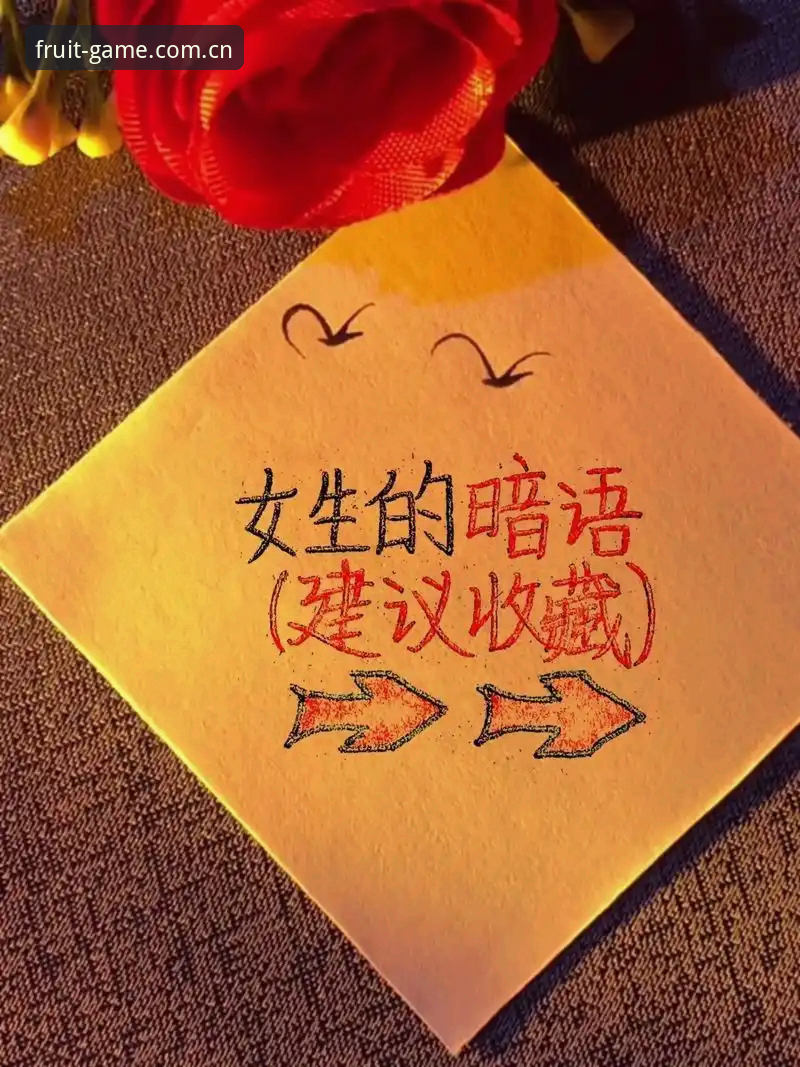 fruit-game.com.cn
女生的暗语
(建议收藏)